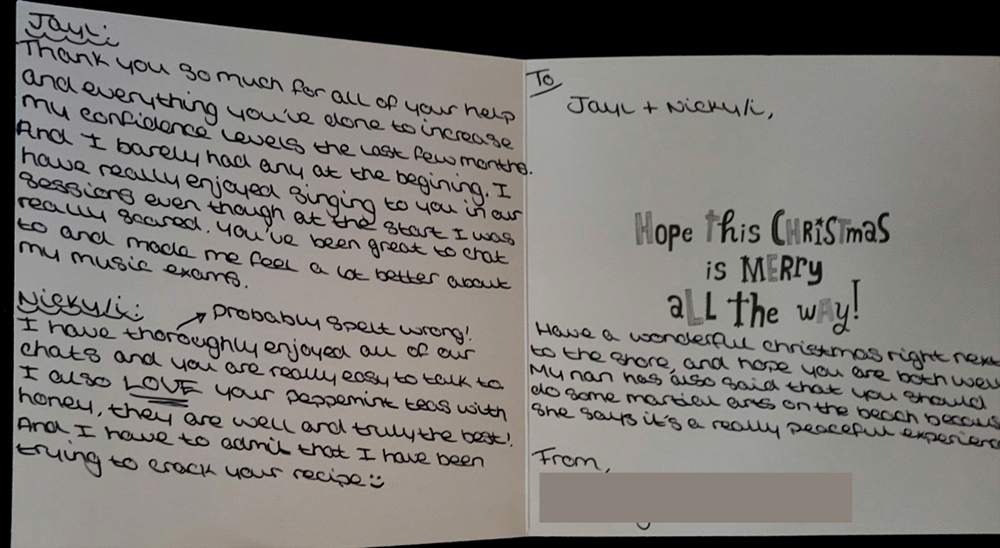 Jayli:
Thank you so much for all of your help
and everything you've done to increase
my confidence levels the last few months.
And I barely had any at the begining. I
have really enjoyed singing to you in our
sessions even though at the start I was
really scared. You've been great to chat
to and made me feel a lot better about
my music exams.
Nickyli:
Probably spelt wrong!
I have thoroughly enjoyed all of our
chats and you are really easy to talk to
I also LOVE your peppermint teas with
honey, they are well and truly the best!
And I have to admit that I have been
trying to crack your recipe
To
Jayl + Nickyli,
Hope this CHRISTmas
is MERRy
aLL the wAy!
Have a wonderful christmas right next
to the shore, and hope you are both well
My nan has also said that you should
do some martial arts on the beach becaus
she says it's a really peaceful experience
From,